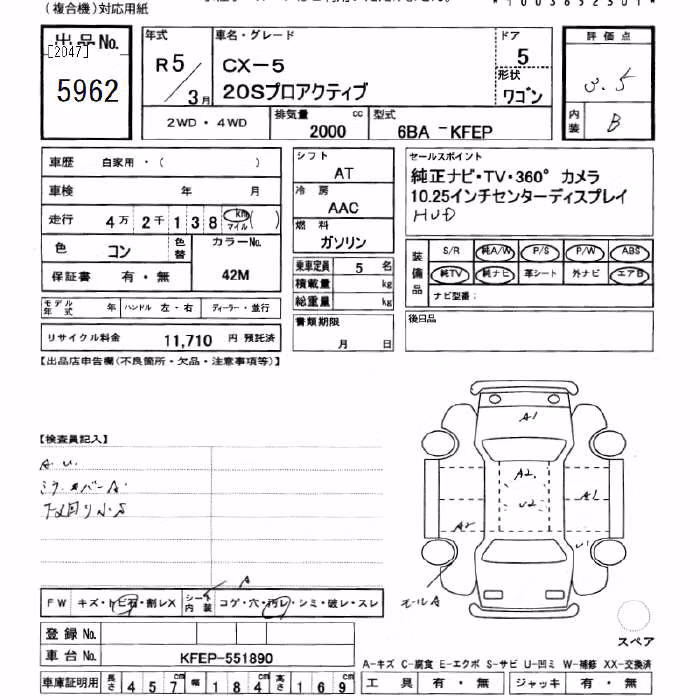 (複合機)対応用紙
出品No.
[2047]
5962
年式
R5/3月
車名・グレード
CX-5
20Sプロアクティブ
ドア
5
形状
ワゴン
2WD・4WD
排気量 cc
2000
型式
6BA-KFEP
評価点
3.5
内装
B
車歴 自家用・( )
車検 年 月
走行 4万2千138 km マイル ( )
色 コン
色替
カラーNo.
42M
保証書 有・無
モデル年式 年 ハンドル 左・右 ディーラー・並行
リサイクル料金 11,710 円 預託済
シフト
AT
冷房
AAC
燃料
ガソリン
乗車定員 5 名
積載量 kg
総重量 kg
書類期限
月 日
セールスポイント
純正ナビ・TV・360° カメラ
10.25インチセンターディスプレイ
HUD
装備品
S/R 純A/W P/S P/W ABS
純TV 純ナビ 革シート 外ナビ エアB
ナビ型番:
後日品
【出品店申告欄(不良箇所・欠品・注意事項等)】
【検査員記入】
A.U.
ミラーカバーA
下廻りS.S
A1
A2
U2
A1
A2
U1
ホールA
スペア
FW キズ・トビ石・割レX
シート内装 コゲ・穴・汚レ・シミ・破レ・スレ
A
登録No.
車台No. KFEP-551890
車庫証明用 長さ 457 幅 184 高さ 169
A-キズ C-腐食 E-エクボ S-サビ U-凹ミ W-補修 XX-交換済
工具 有・無 ジャッキ 有・無